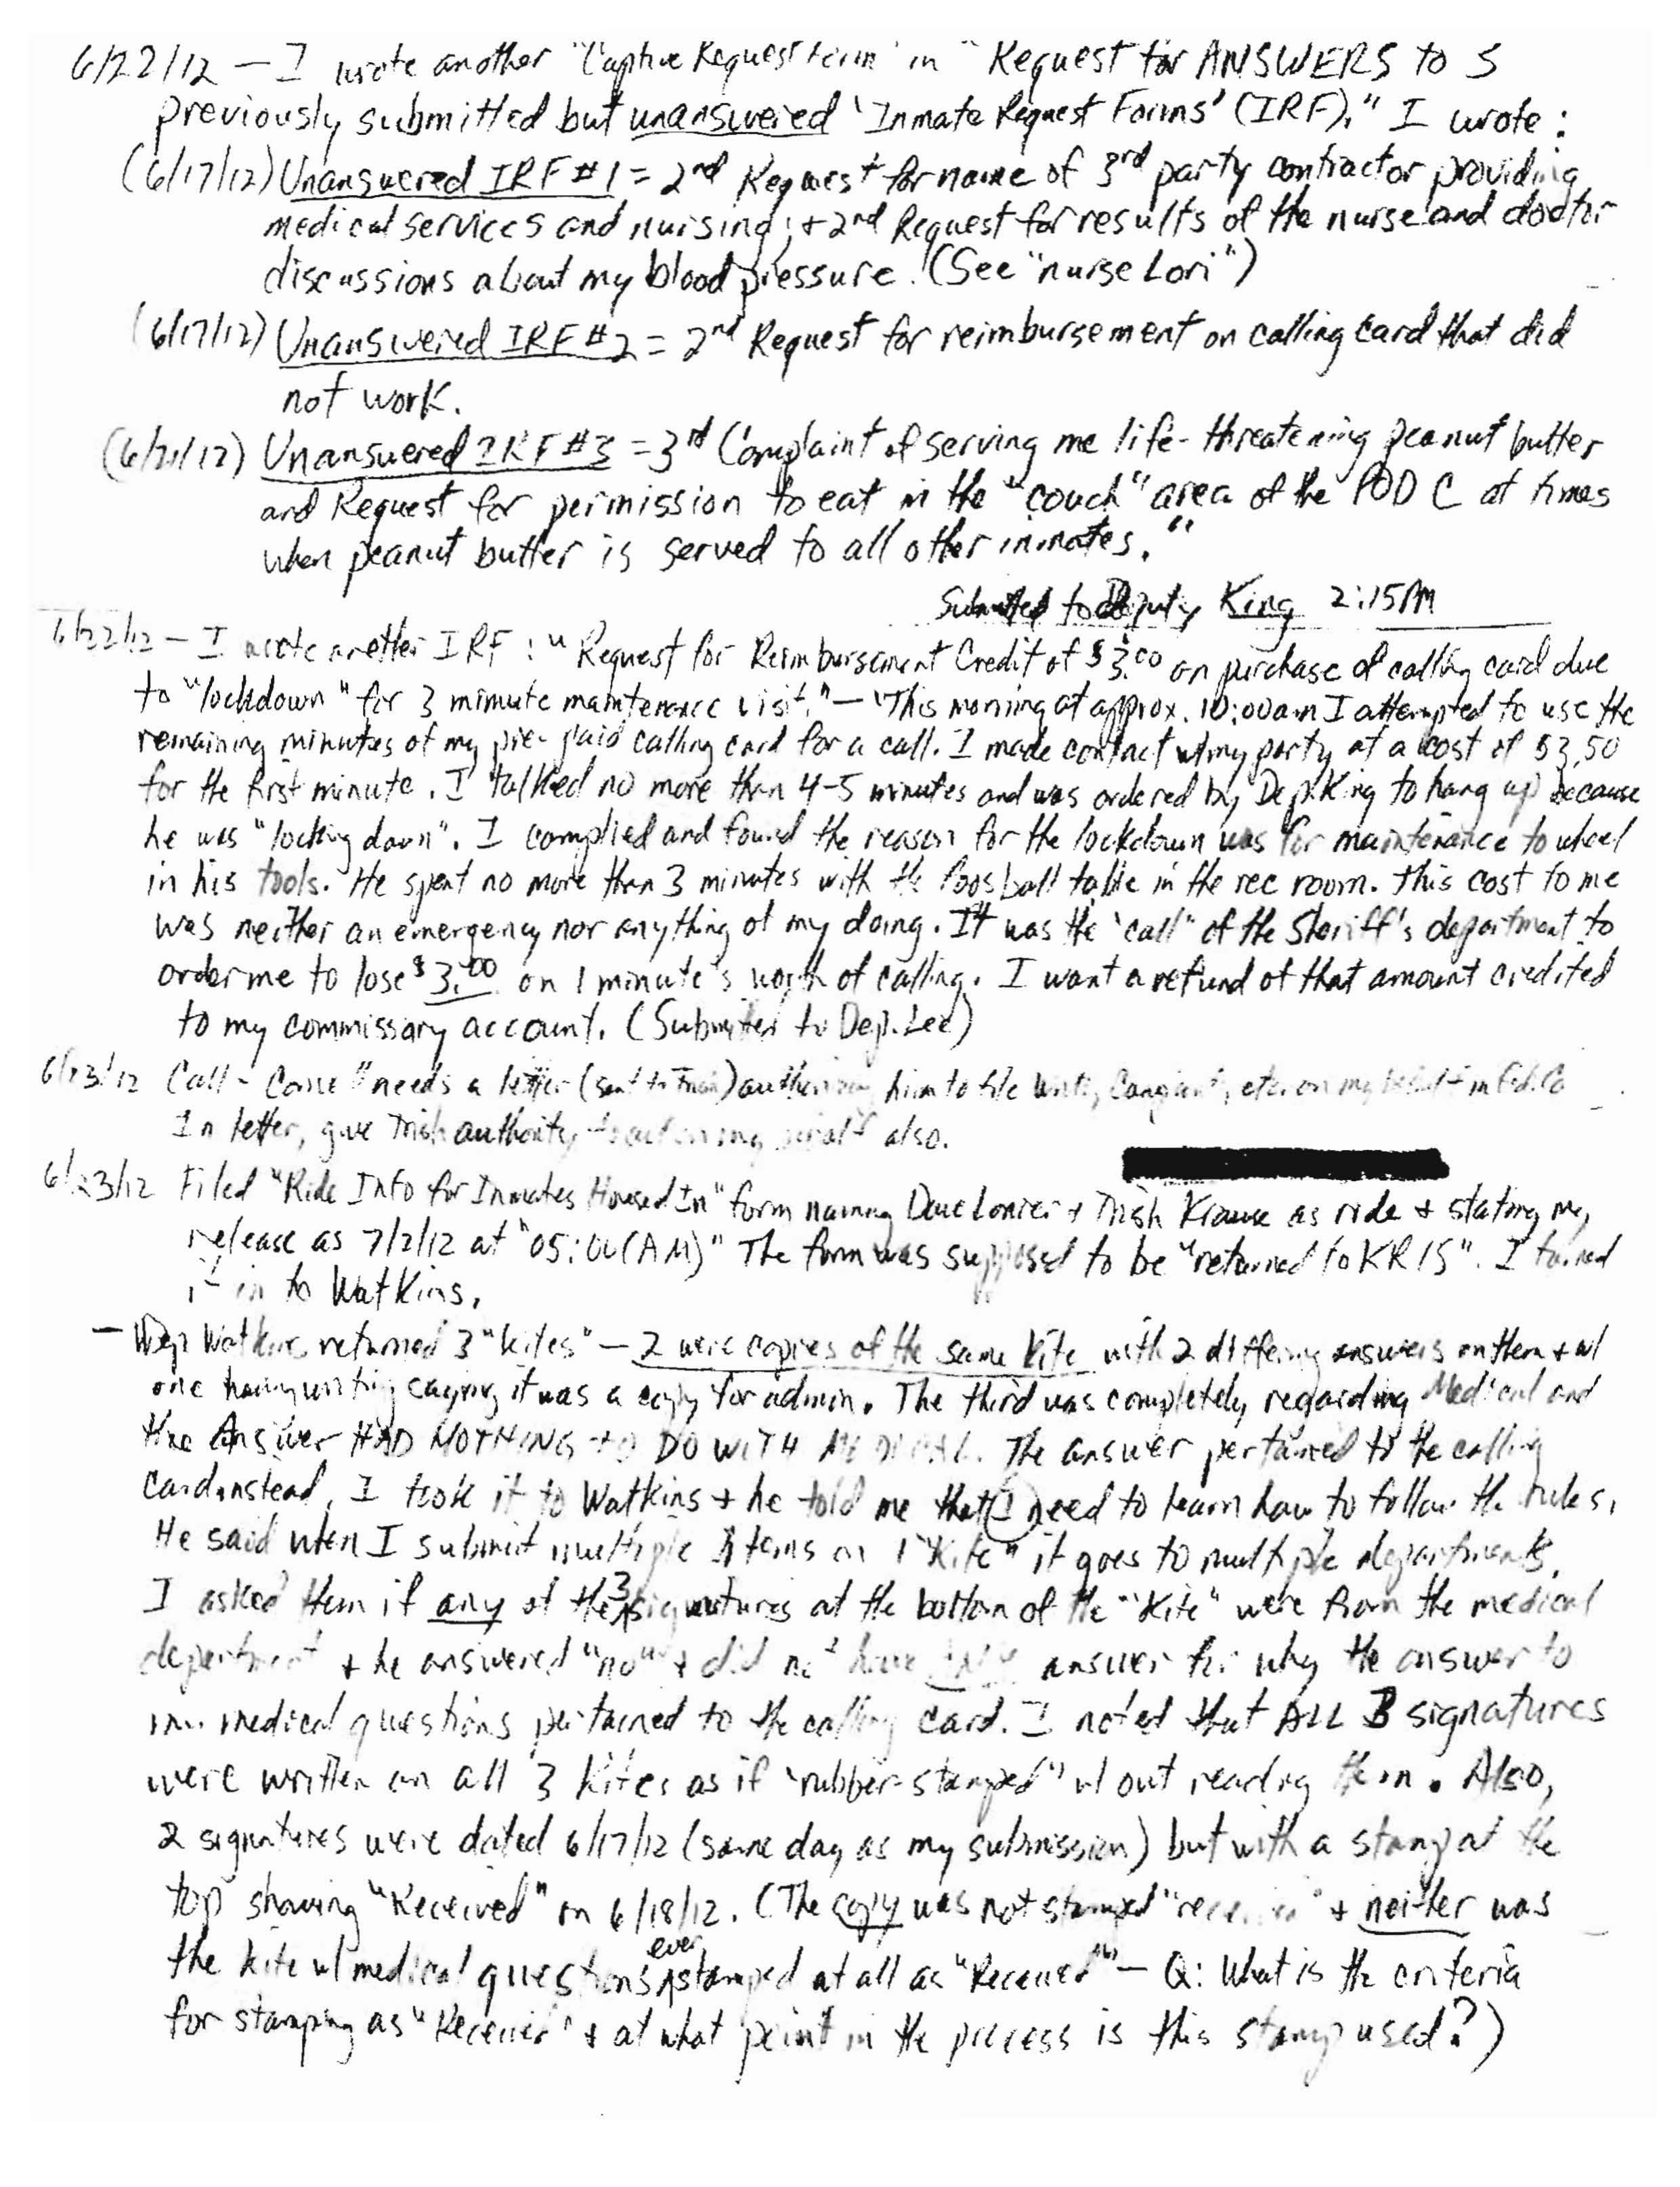 6/22/12 — I wrote another "Captive Request Form" in "Request for ANSWERS to 3
previously submitted but unanswered 'Inmate Request Forms' (IRF)." I wrote:
(6/17/12) Unanswered IRF #1 = 2nd Request for name of 3rd party contractor providing
medical services and nursing; + 2nd Request for results of the nurse and doctor
discussions about my blood pressure. (See "nurse Lori")
(6/17/12) Unanswered IRF #2 = 2nd Request for reimbursement on calling card that did
not work.
(6/21/12) Unanswered IRF #3 = 3rd Complaint of serving me life-threatening peanut butter
and Request for permission to eat in the "couch" area of the POD C at times
when peanut butter is served to all other inmates."
Submitted to Deputy King 2:15PM
6/22/12 — I wrote another IRF: "Request for Reimbursement Credit of $3.00 on purchase of calling card due
to "lockdown" for 3 minute maintenance visit." — "This morning at approx. 10:00am I attempted to use the
remaining minutes of my pre-paid calling card for a call. I made contact w/my party at a cost of $3.50
for the first minute. I talked no more than 4-5 minutes and was ordered by Dep. King to hang up because
he was "locking down". I complied and found the reason for the lockdown was for maintenance to wheel
in his tools. He spent no more than 3 minutes with the foosball table in the rec room. This cost to me
was neither an emergency nor anything of my doing. It was the "call" of the Sheriff's department to
order me to lose $3.00 on 1 minute's worth of calling. I want a refund of that amount credited
to my commissary account. (Submitted to Dep. Lee)
6/23/12 Call - "needs a letter (sent to ) him to file etc. on my behalf in
In letter, give Trish authority to act on my behalf also.
6/23/12 Filed "Ride Info for Inmates Housed In" form naming Dave Lonier + Trish Krause as ride + stating my
release as 7/2/12 at "05:00(AM)" The form was supposed to be "returned to KRIS". I turned
it in to Watkins.
— Dep Watkins returned 3 "kites" — 2 were copies of the same kite with 2 differing answers on them + w/
one having writing saying it was a copy for admin. The third was completely regarding Medical and
the Answer HAD NOTHING TO DO WITH MEDICAL. The answer pertained to the calling
card instead. I took it to Watkins + he told me that I need to learn how to follow the rules.
He said when I submit multiple items on 1 "Kite" it goes to multiple departments.
I asked them if any of the 3 signatures at the bottom of the "Kite" were from the medical
department + he answered "no" + did not have answer for why the answer to
my medical questions pertained to the calling card. I noted that ALL 3 signatures
were written on all 3 kites as if "rubber-stamped" w/out reading them. Also,
2 signatures were dated 6/17/12 (same day as my submission) but with a stamp at the
top showing "Received" on 6/18/12. (The copy was not stamped "received" + neither was
the kite w/medical questions ever stamped at all as "Received" — Q: What is the criteria
for stamping as "Received" + at what point in the process is this stamp used?)